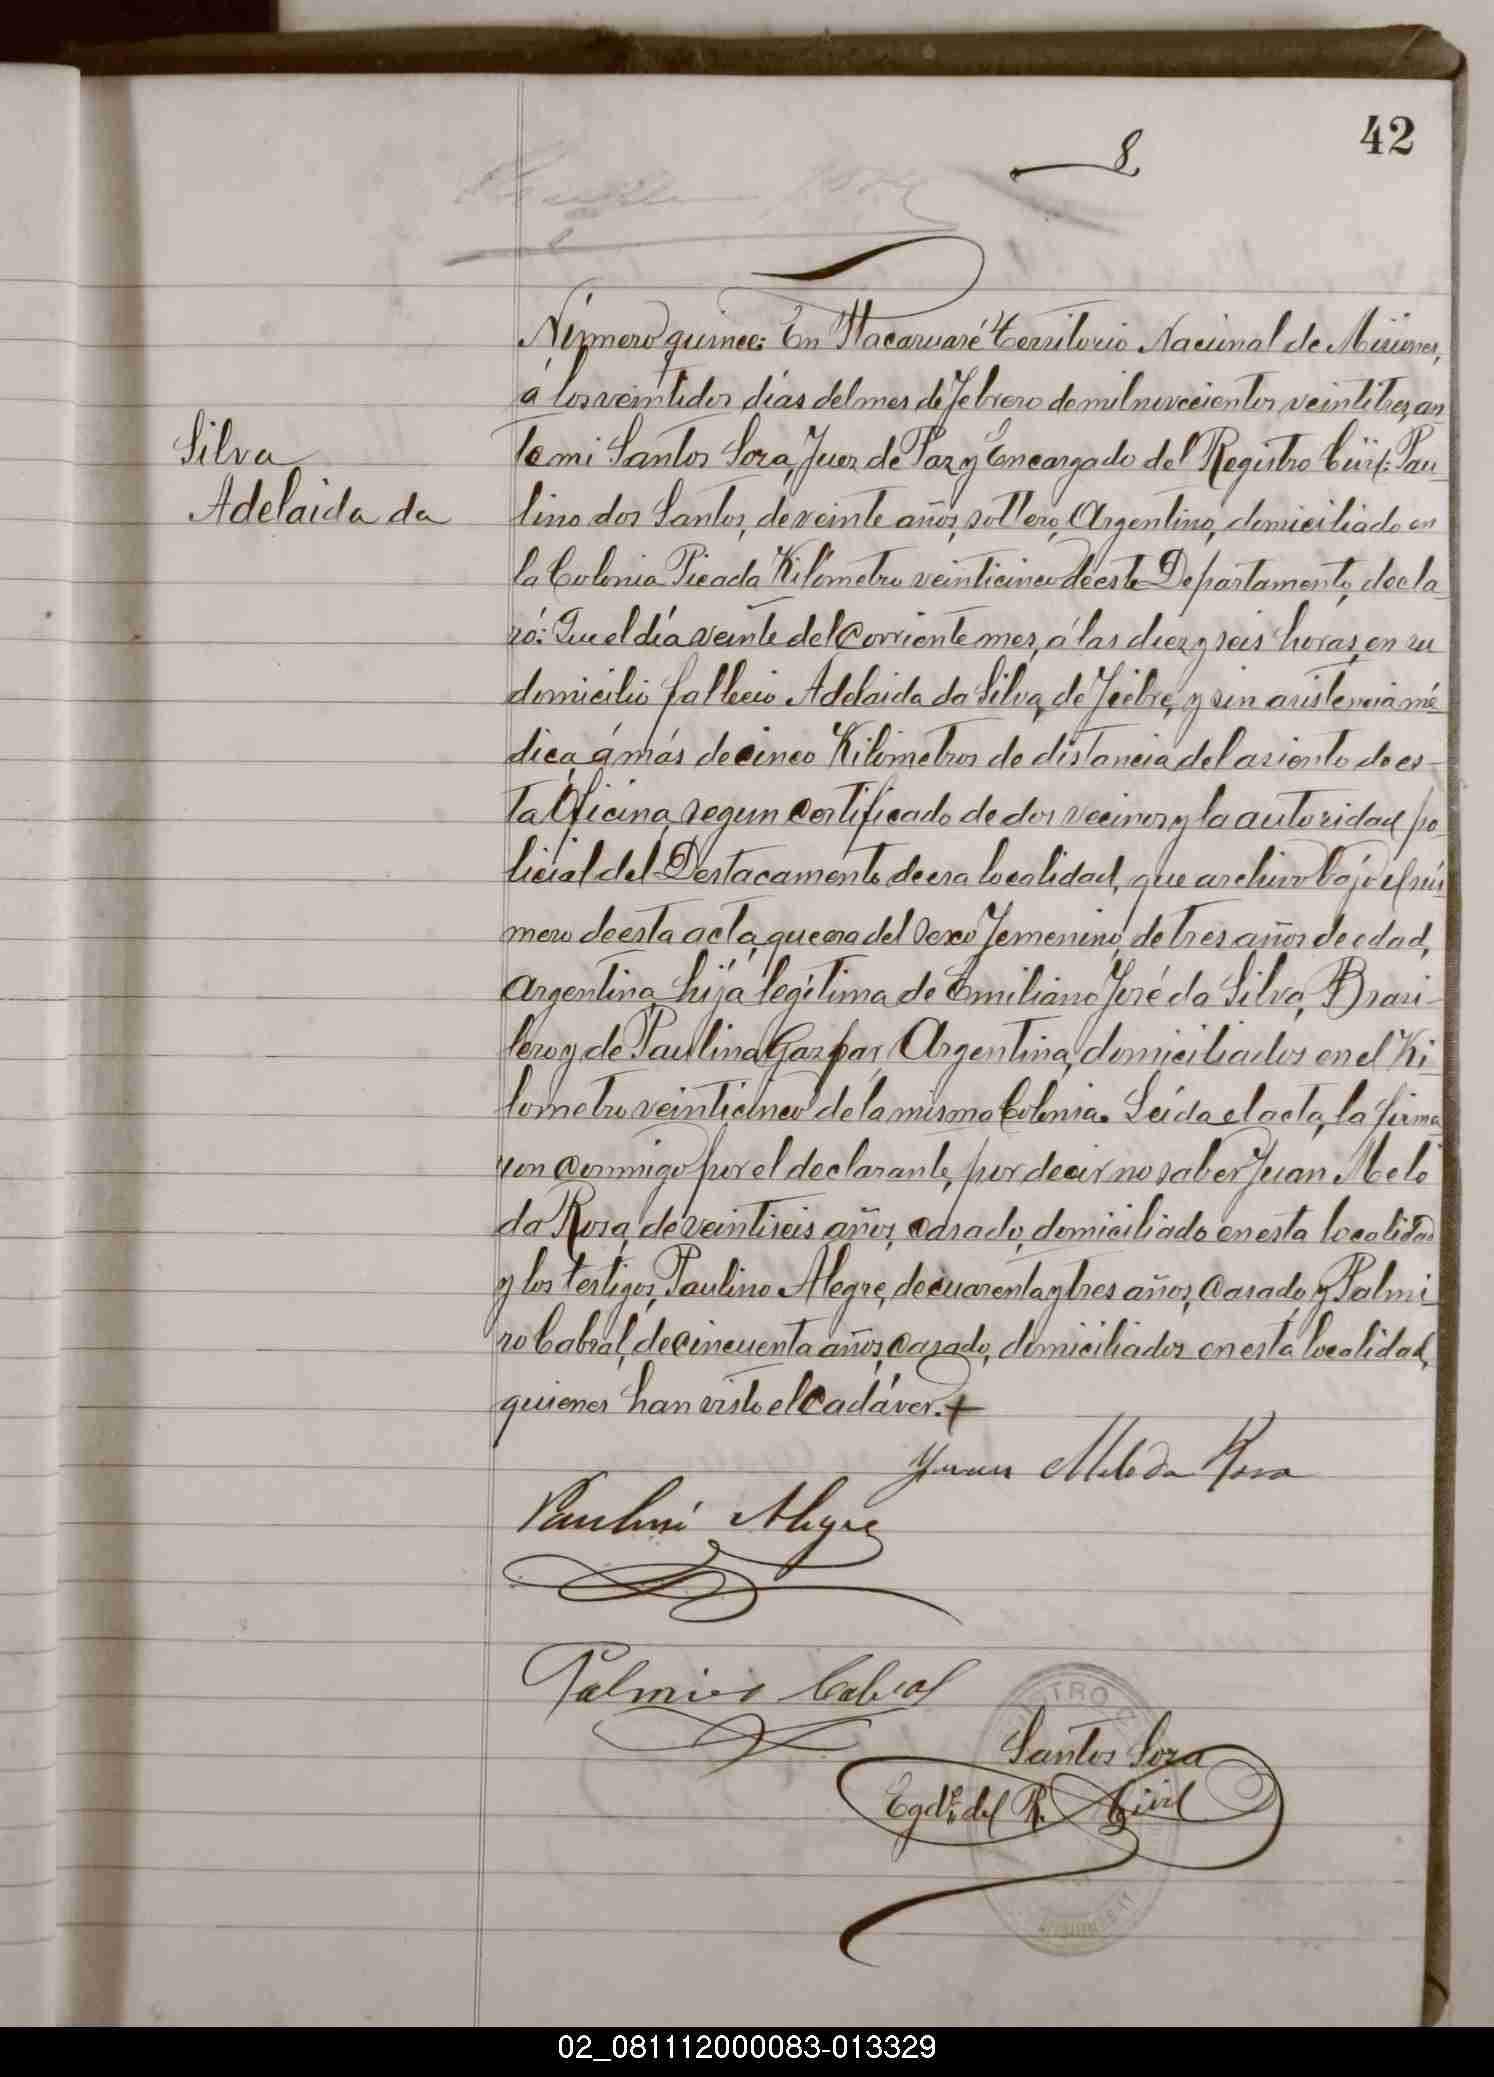 42
8
Silva
Adelaida da
Número quince: En Itacaruaré Territorio Nacional de Misiones,
á los veintidos días del mes de Febrero de mil novecientos veintitres, an
te mi Santos Sora, Juez de Paz y Encargado del Registro Civil: Pau
lino dos Santos, de veinte años, soltero, Argentino, domiciliado en
la Colonia Picada Kilómetro veinticinco de este Departamento, decla
ró: Que el día veinte del Corriente mes, á las diez y seis horas, en su
domicilio fallecio Adelaida da Silva, de Fiebre, y sin asistencia mé
dica, á más de cinco Kilómetros de distancia del asiento de es-
ta Oficina, segun Certificado de dos vecinos y la autoridad po
licial del Destacamento de esa localidad, que archivo bajo el nú
mero de esta acta, que era del Sexo Femenino, de tres años de edad,
Argentina, hija legítima de Emiliano José da Silva, Brasi-
lero y de Paulina Gaspar, Argentina, domiciliados en el Ki
lometro veinticinco de la misma Colonia. Leída el acta, la firma
ron Conmigo por el declarante, por decir no saber Juan Melo
da Rosa, de veintiseis años, casado, domiciliado en esta localidad
y los testigos, Paulino Alegre, de cuarenta y tres años, Casado, y Palmi
ro Cabral, de cincuenta años, casado, domiciliados en esta localidad,
quienes han visto el Cadáver.+
Juan Melo da Rosa
Paulino Alegre
Palmiro Cabral
Santos Sora
Egdo. del R. Civil
02_081112000083-013329